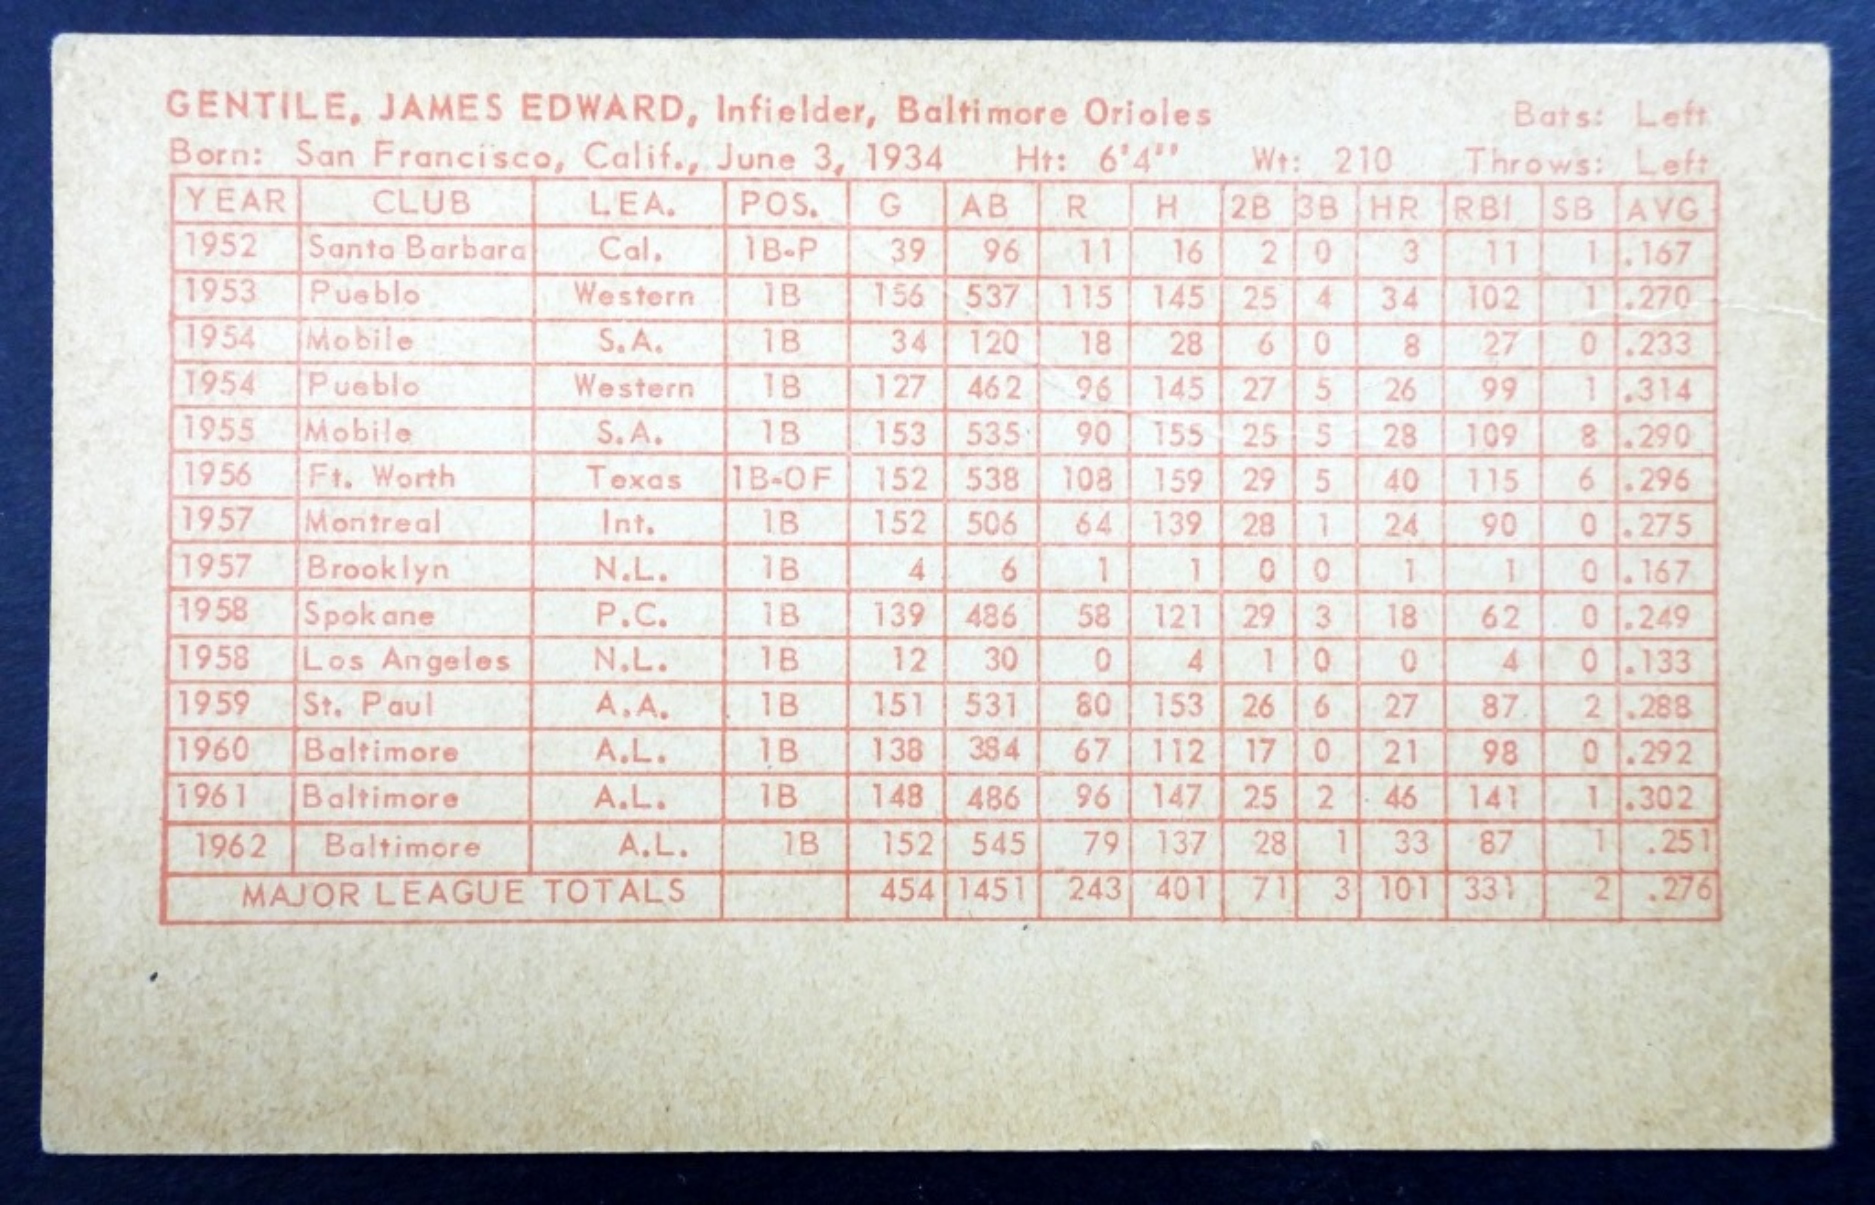 GENTILE, JAMES EDWARD, Infielder, Baltimore Orioles Bats: Left
Born: San Francisco, Calif., June 3, 1934 Ht: 6'4'' Wt: 210 Throws: Left
YEAR CLUB LEA. POS. G AB R H 2B 3B HR RBI SB AVG
1952 Santa Barbara Cal. 1B-P 39 96 11 16 2 0 3 11 1 .167
1953 Pueblo Western 1B 156 537 115 145 25 4 34 102 1 .270
1954 Mobile S.A. 1B 34 120 18 28 6 0 8 27 0 .233
1954 Pueblo Western 1B 127 462 96 145 27 5 26 99 1 .314
1955 Mobile S.A. 1B 153 535 90 155 25 5 28 109 8 .290
1956 Ft. Worth Texas 1B-OF 152 538 108 159 29 5 40 115 6 .296
1957 Montreal Int. 1B 152 506 64 139 28 1 24 90 0 .275
1957 Brooklyn N.L. 1B 4 6 1 1 0 0 1 1 0 .167
1958 Spokane P.C. 1B 139 486 58 121 29 3 18 62 0 .249
1958 Los Angeles N.L. 1B 12 30 0 4 1 0 0 4 0 .133
1959 St. Paul A.A. 1B 151 531 80 153 26 6 27 87 2 .288
1960 Baltimore A.L. 1B 138 384 67 112 17 0 21 98 0 .292
1961 Baltimore A.L. 1B 148 486 96 147 25 2 46 141 1 .302
1962 Baltimore A.L. 1B 152 545 79 137 28 1 33 87 1 .251
MAJOR LEAGUE TOTALS 454 1451 243 401 71 3 101 331 2 .276